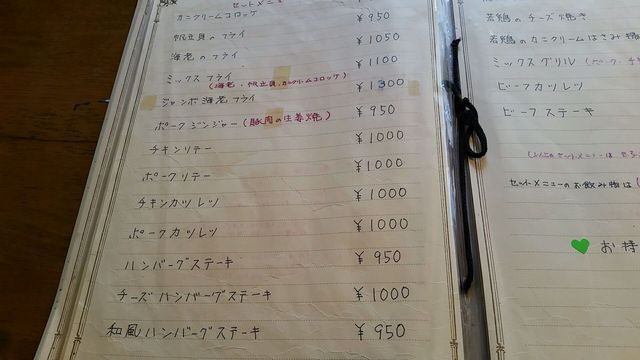 セットメニュー
カニクリームコロッケ ￥950
帆立貝のフライ ￥1050
海老のフライ ￥1100
ミックスフライ
(海老・帆立貝・カニクリームコロッケ) ￥1300
ジャンボ海老フライ
ポークジンジャー(豚肉の生姜焼) ￥950
チキンソテー ￥1000
ポークソテー ￥1000
チキンカツレツ ￥1000
ポークカツレツ ￥1000
ハンバーグステーキ ￥950
チーズハンバーグステーキ ￥1000
和風ハンバーグステーキ ￥950
若鶏のチーズ焼き
若鶏のカニクリームはさみ揚
ミックスグリル (ポーク、チキ
ビーフカツレツ
ビーフステーキ
セットメニューは
セットメニューのお飲み物は
お持